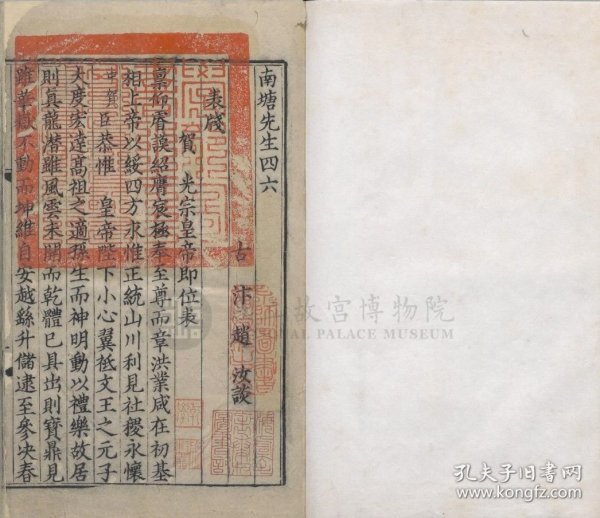 南塘先生四六
古汴趙汝談
表牋
賀光宗皇帝即位表
稟仰睿謨紹膺宸極奉至尊而章洪業咸在初基
相上帝以綏四方永惟正統山川利見社稷永懷
中賀臣恭惟皇帝陛下小心翼祗文王之元子
大度宏達高祖之適孫生而神明動以禮樂故居
則真龍潛雖風雲未開而乾體已具出則寶鼎見
雖華嶽不動而坤維自安越繇升儲逮至參決春
故宮博物院
PALACE MUSEUM
孔夫子旧书网
www.kongfz.com